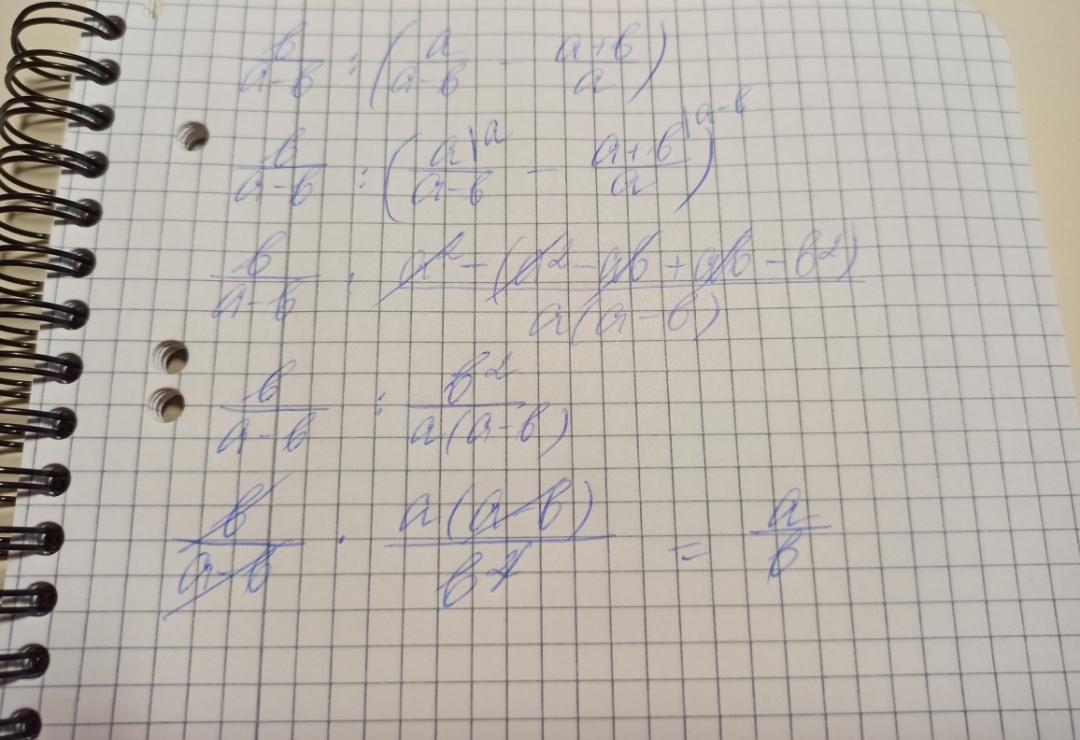 b/(a-b) : (a/(a-b) - (a+b)/a)
b/(a-b) : (a|a/(a-b) - (a+b)|a-b/a)
b/(a-b) · (a² - (a² - ab + ab - b²))/(a(a-b))
b/(a-b) : b²/(a(a-b))
b/(a-b) · a(a-b)/b² = a/b